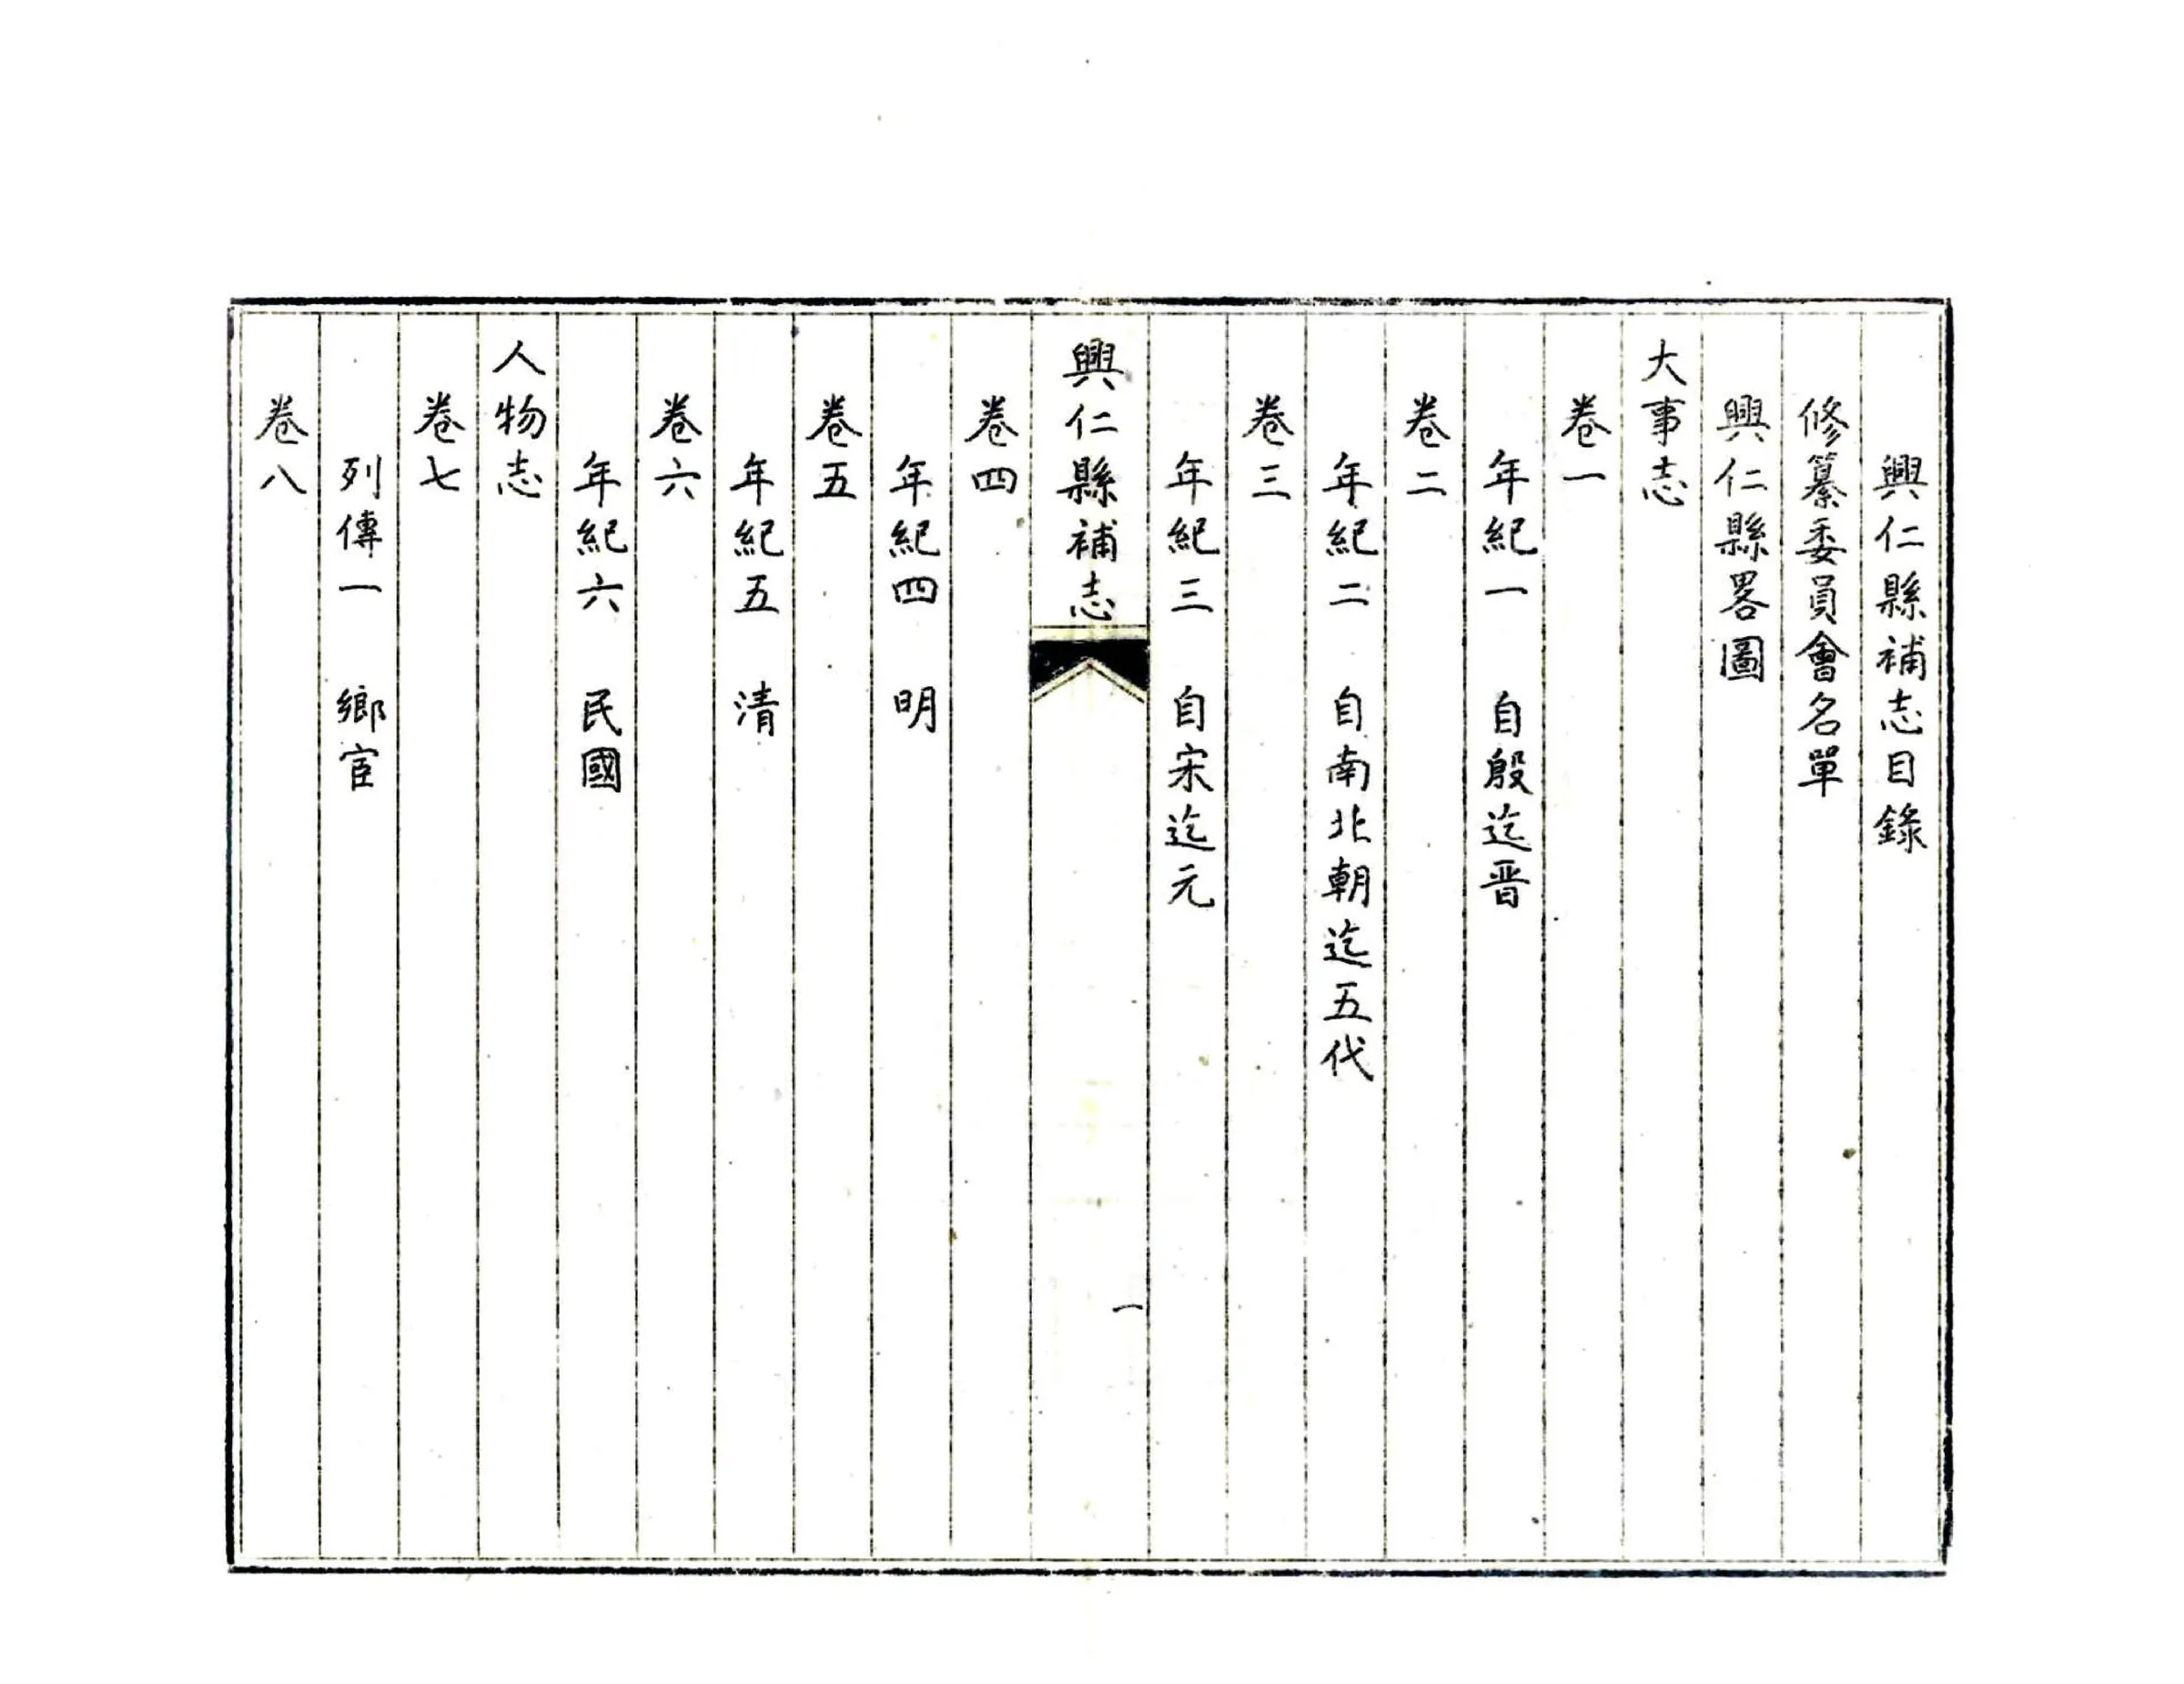 興仁縣補志目錄
修纂委員會名單
興仁縣畧圖
大事志
卷一
年紀一　自殷迄晋
卷二
年紀二　自南北朝迄五代
卷三
年紀三　自宋迄元
興仁縣補志
一
卷四
年紀四　明
卷五
年紀五　清
卷六
年紀六　民國
人物志
卷七
列傳一　鄉宦
卷八